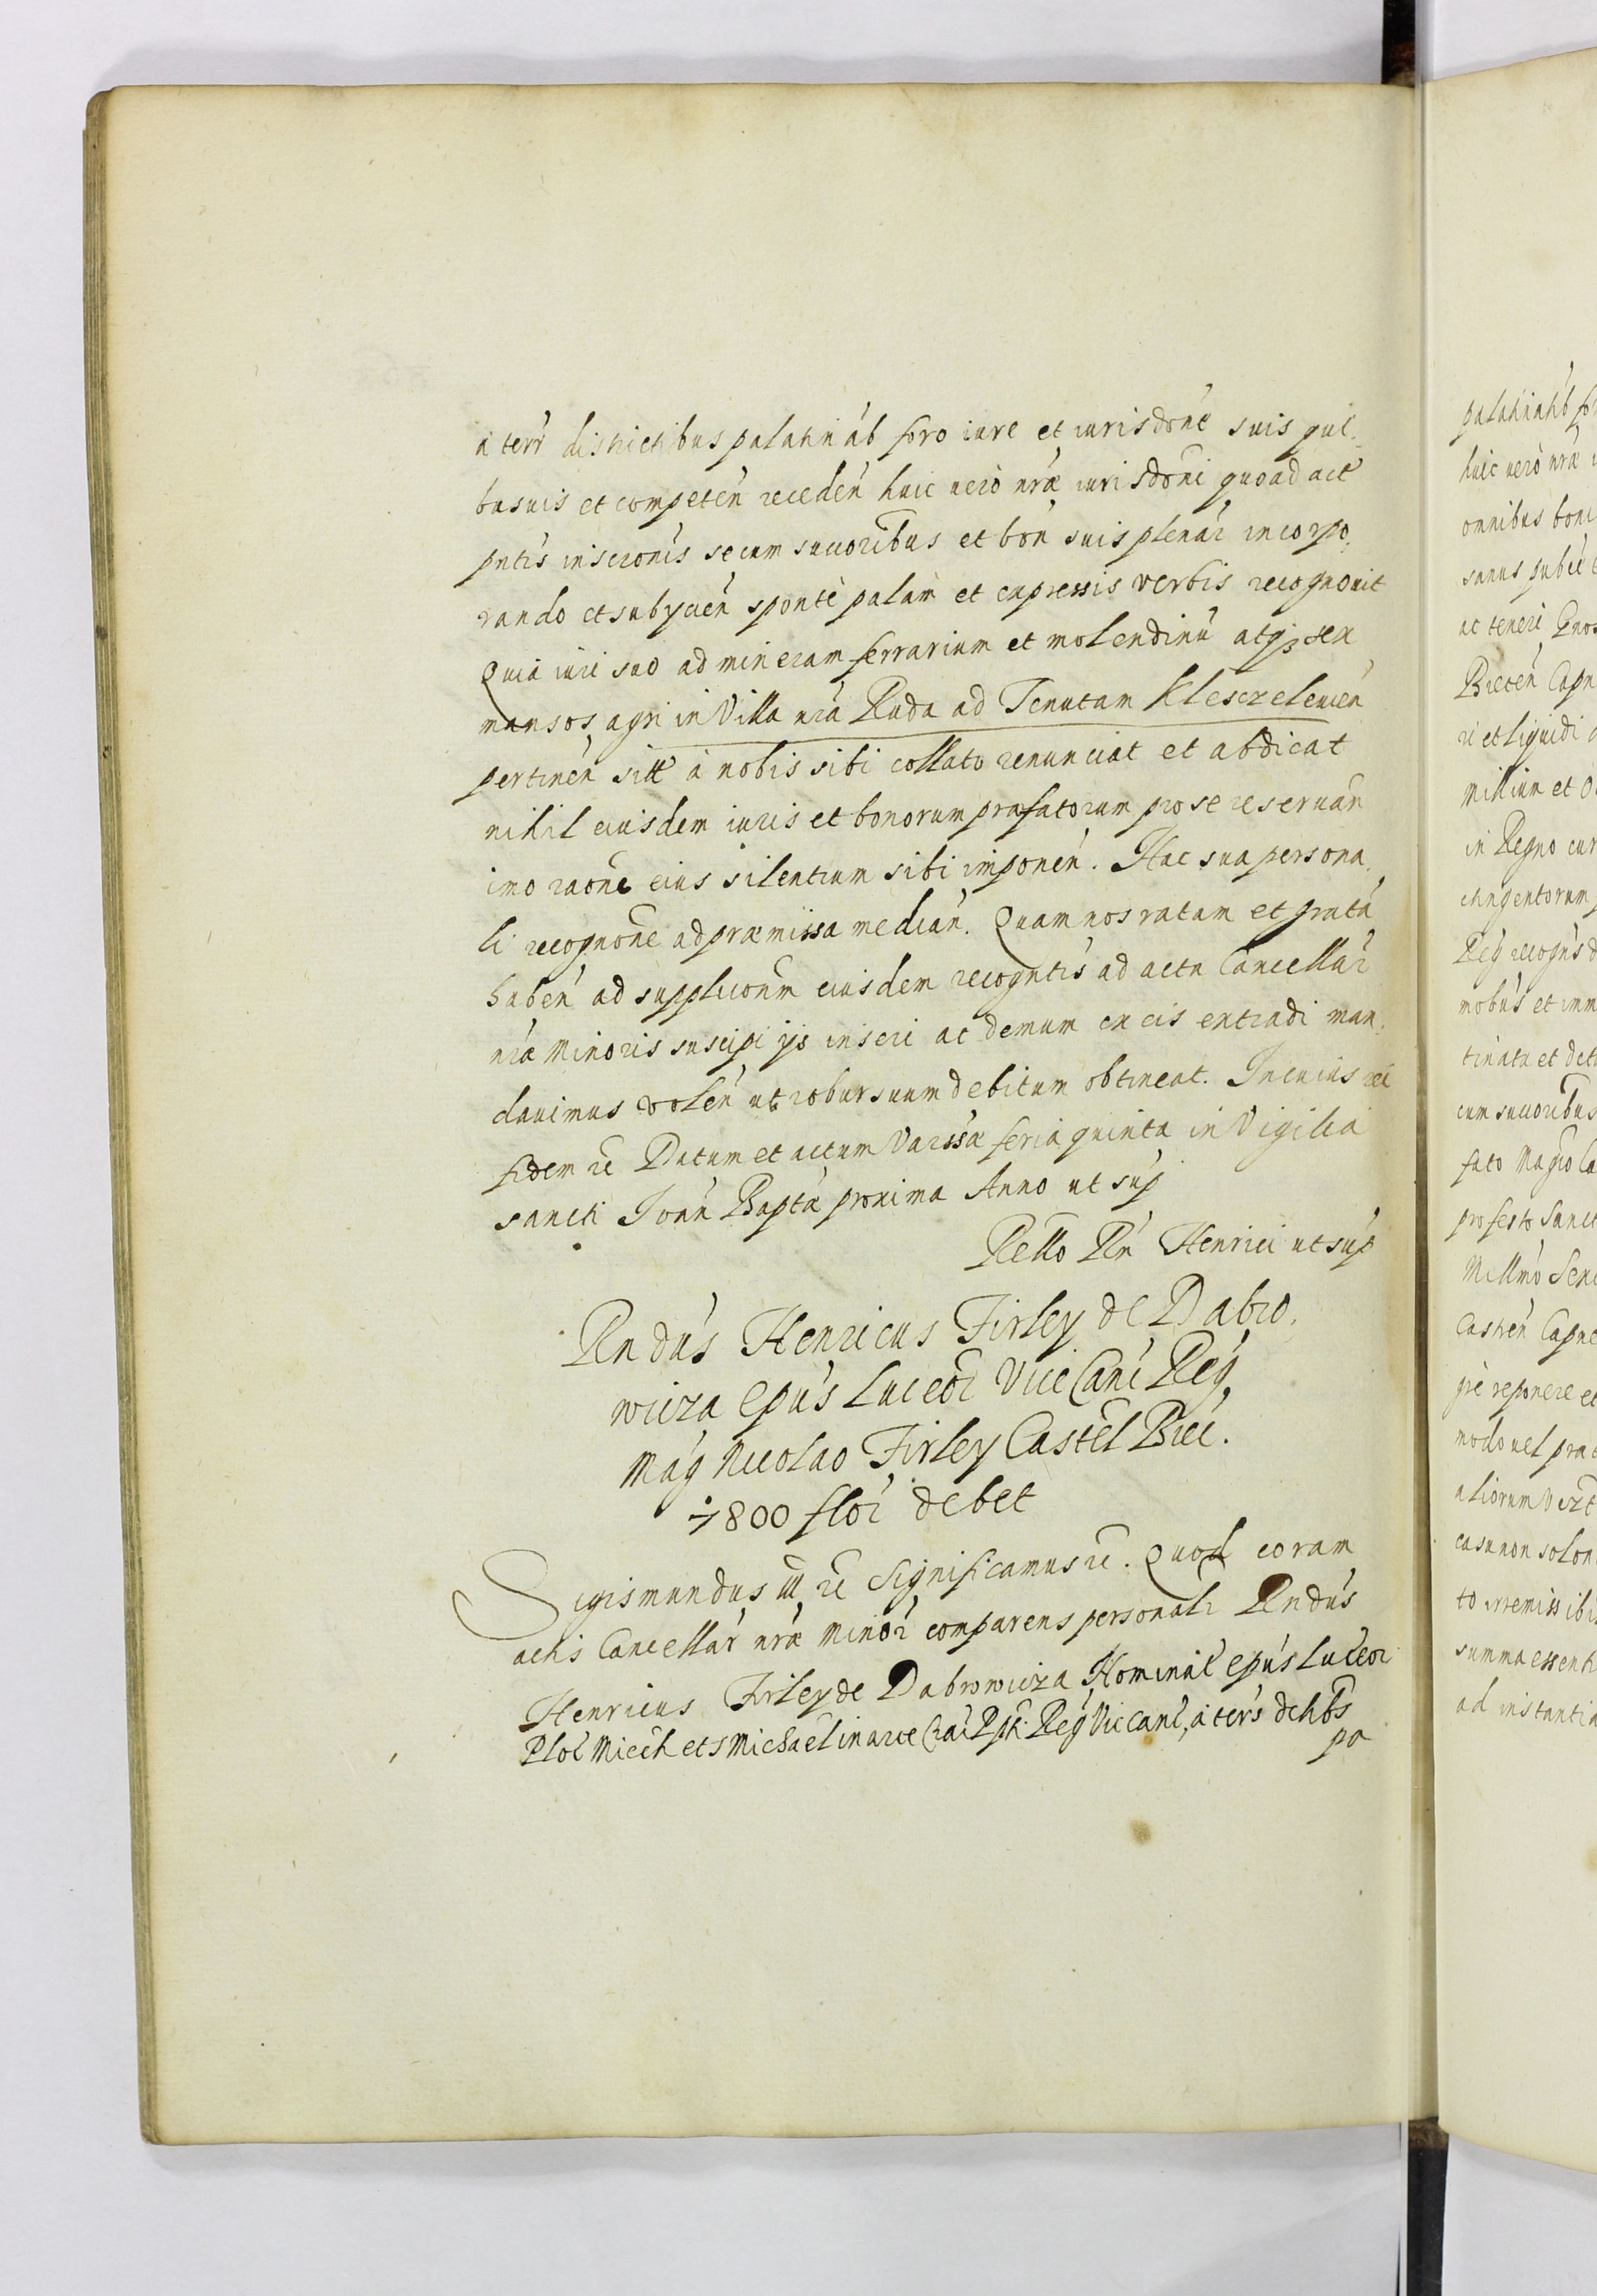 a terr districtibus palatinab foro iure et iurisdone suis qui¬
busuis et competen receden huic vero nræ iurisdoni quoad act
pntis inscronis secum succoribus et bon suis plenar incorpo¬
rando et subycien sponte palam et expressis verbis recognovit
Quia iuri suo ad mineram ferrarium et molendinu atq3 sex
mansos agri in Villa nra Ruda ad Tenutam Klesczelewien
pertinen sitt a nobis sibi collato renunciat et abdicat
nihil eiusdem iuris et bonorum præfatorum pro se reservan
imo raone eius silentium sibi imponen. Hac sua persona¬
li recognone ad præmissa median. Quam nos ratam et grata
haben ad supplicionem eiusdem recogntis ad acta Cancellar
nræ Minoris suscipi ijs inseri ac demum ex eis extradi man¬
davimus volen ut robur suum debitum obtineat. In cuius rei
fidem rc Datum et actum Varssæ feria quinta in Vigilia
sancti Joan Bapta proxima Anno ut sup
Rello Rn Henrici ut sup
Rndus Henricus Firley de Dabro¬
wicza Epus Luceor Vice Canc Reg
Mag Nicolao Firley Castel Biec.
7800 flor debet
Sigismundus III rc Significamus rc. Quod coram
actis Cancellar nræ Minor comparens personalr Rndus
Henricus Firley de Dabrowicza Nominat Epus Luceor
Ploc Miech et S Michael in arce Crac Ppt. Reg Viccanc, a terris dctibs
pa
palatinatib for
huic vero nræ
omnibus boni
sanus
ac teneri
Biecen Capn
ri et liquidi
Millium et
in Regno cur
ctingentorum
Reg recogns
mobus et imm
tinatu et
cum succoribus
fato Magco Ca
pro festo Sanct
Millmo
Castren Capne
reponere et
modo vel præ
aliorum
casu non solon
to irremissibi
summa essenti
ad instantia